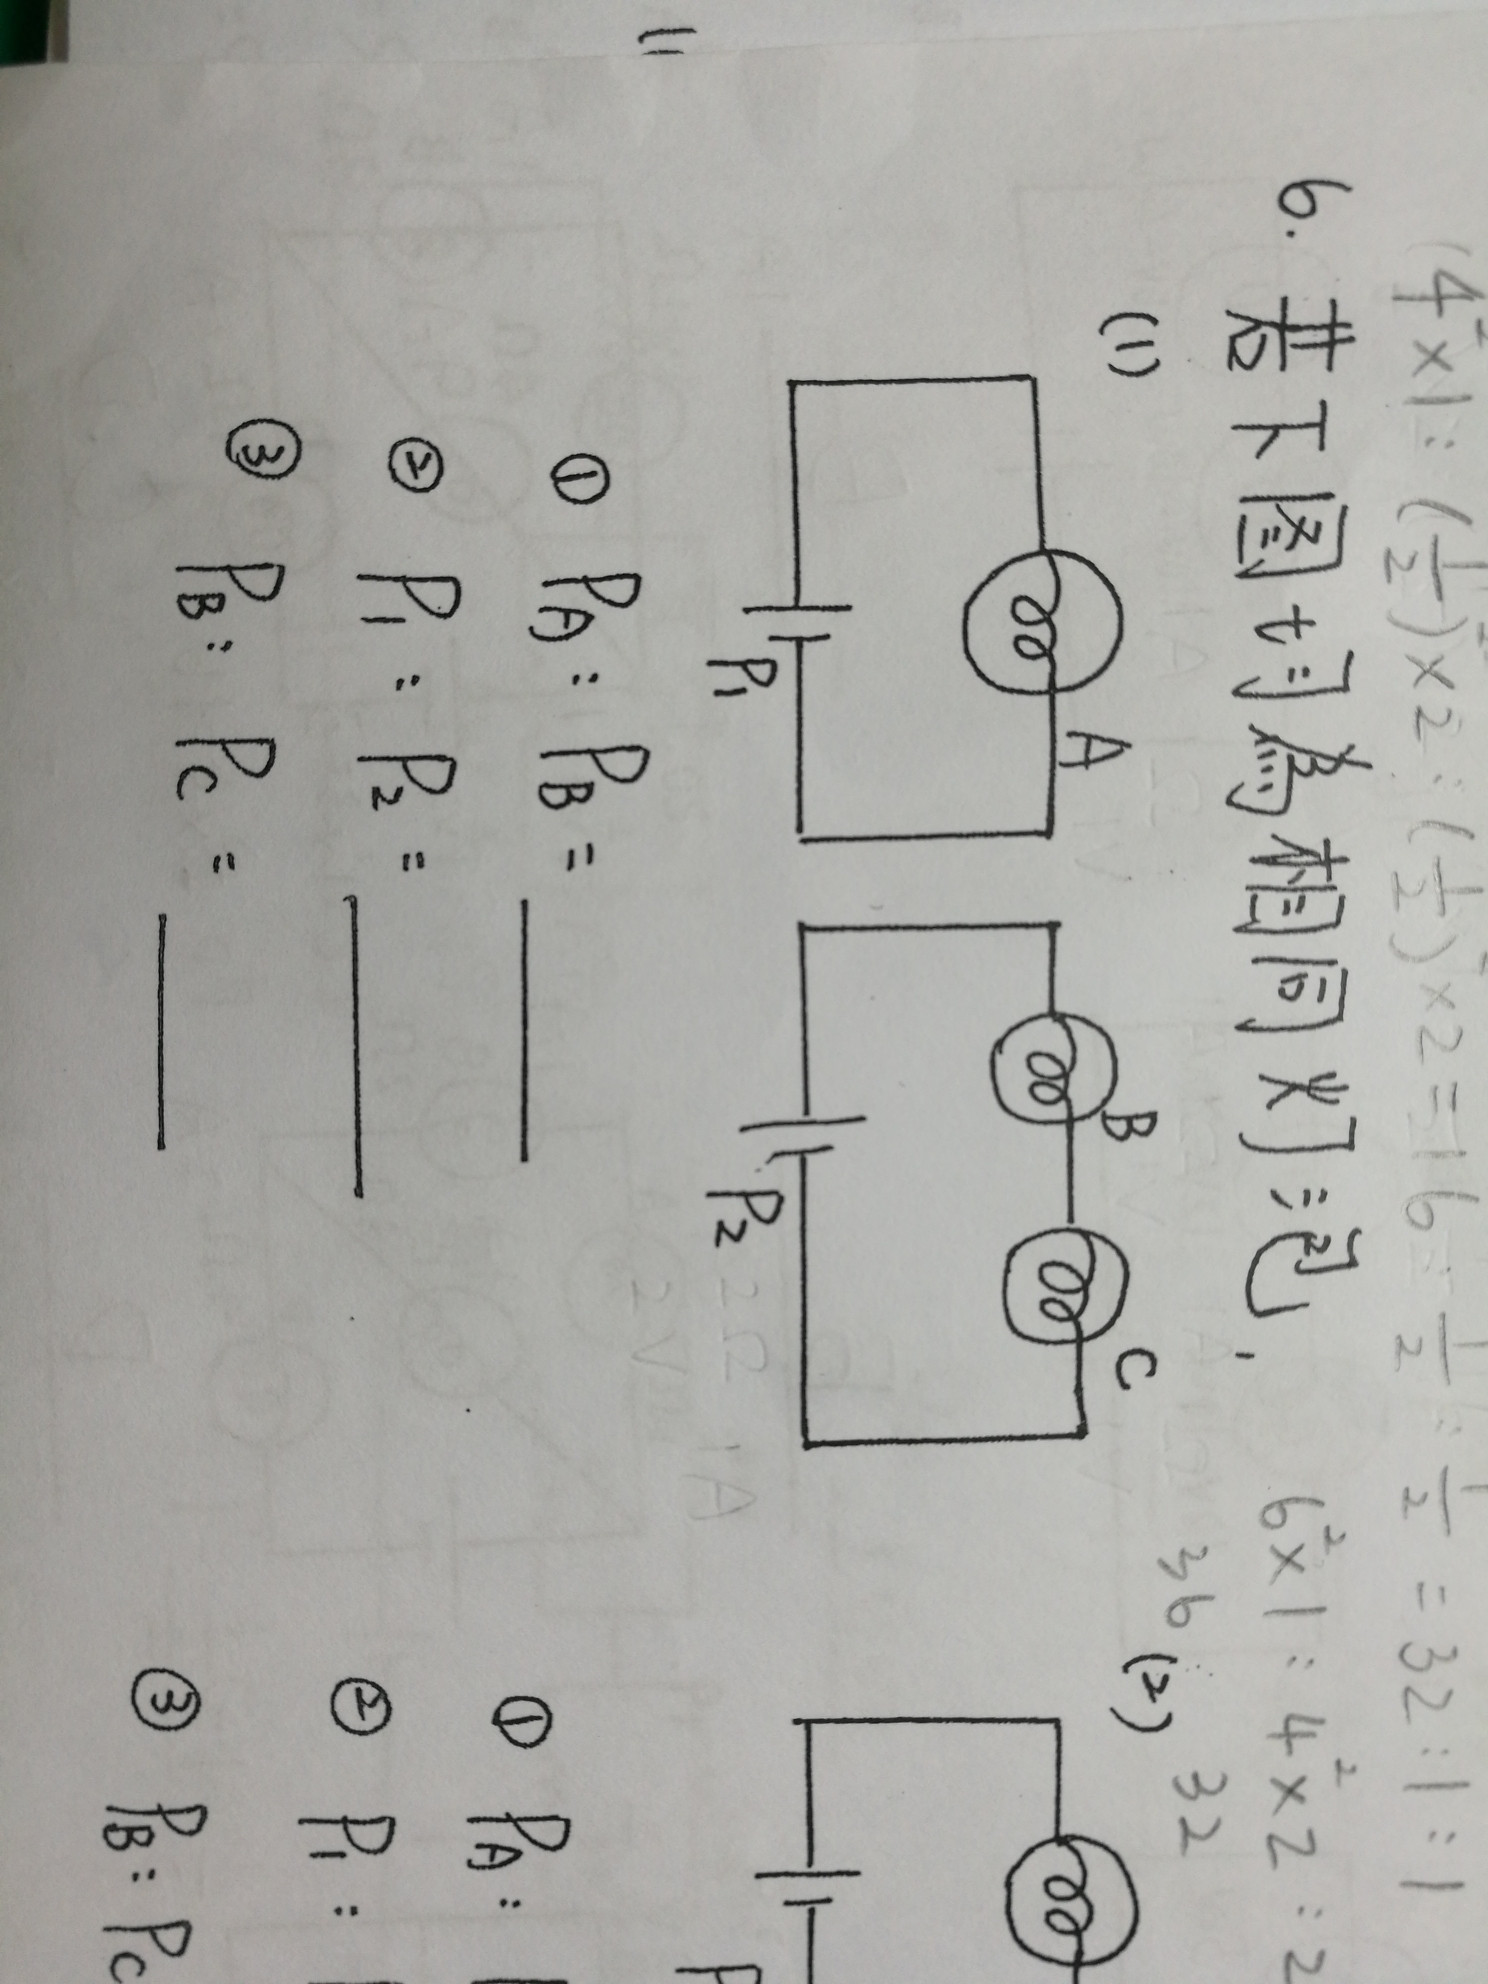 (4²×1 : (1/2)²×2 : (1/2)²×2 = 16 : 1/2 : 1/2 = 32 : 1 : 1
6²×1 : 4²×2 : 2
36 : 32
6. 若下圖切為相同火丁泡,
(1)
A
P₁
B
C
P₂
① PA : PB =
② P₁ : P₂ =
③ PB : PC =
(2)
P
① PA :
② P₁ :
③ PB : PC